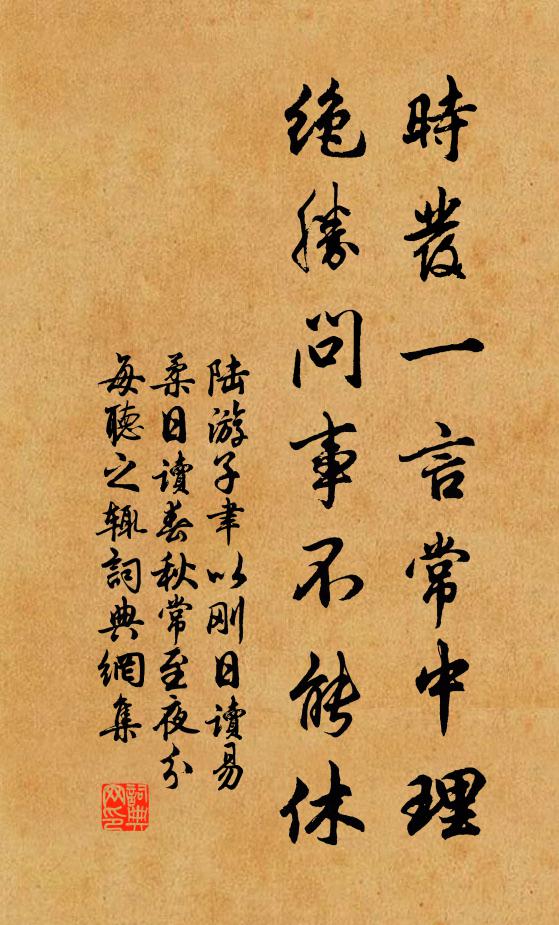 時發一言常中理
絶勝問事不能休
陸游子聿以剛日讀易
柔日讀春秋常至夜分
每聽之輒詞典網集
詞典
网印